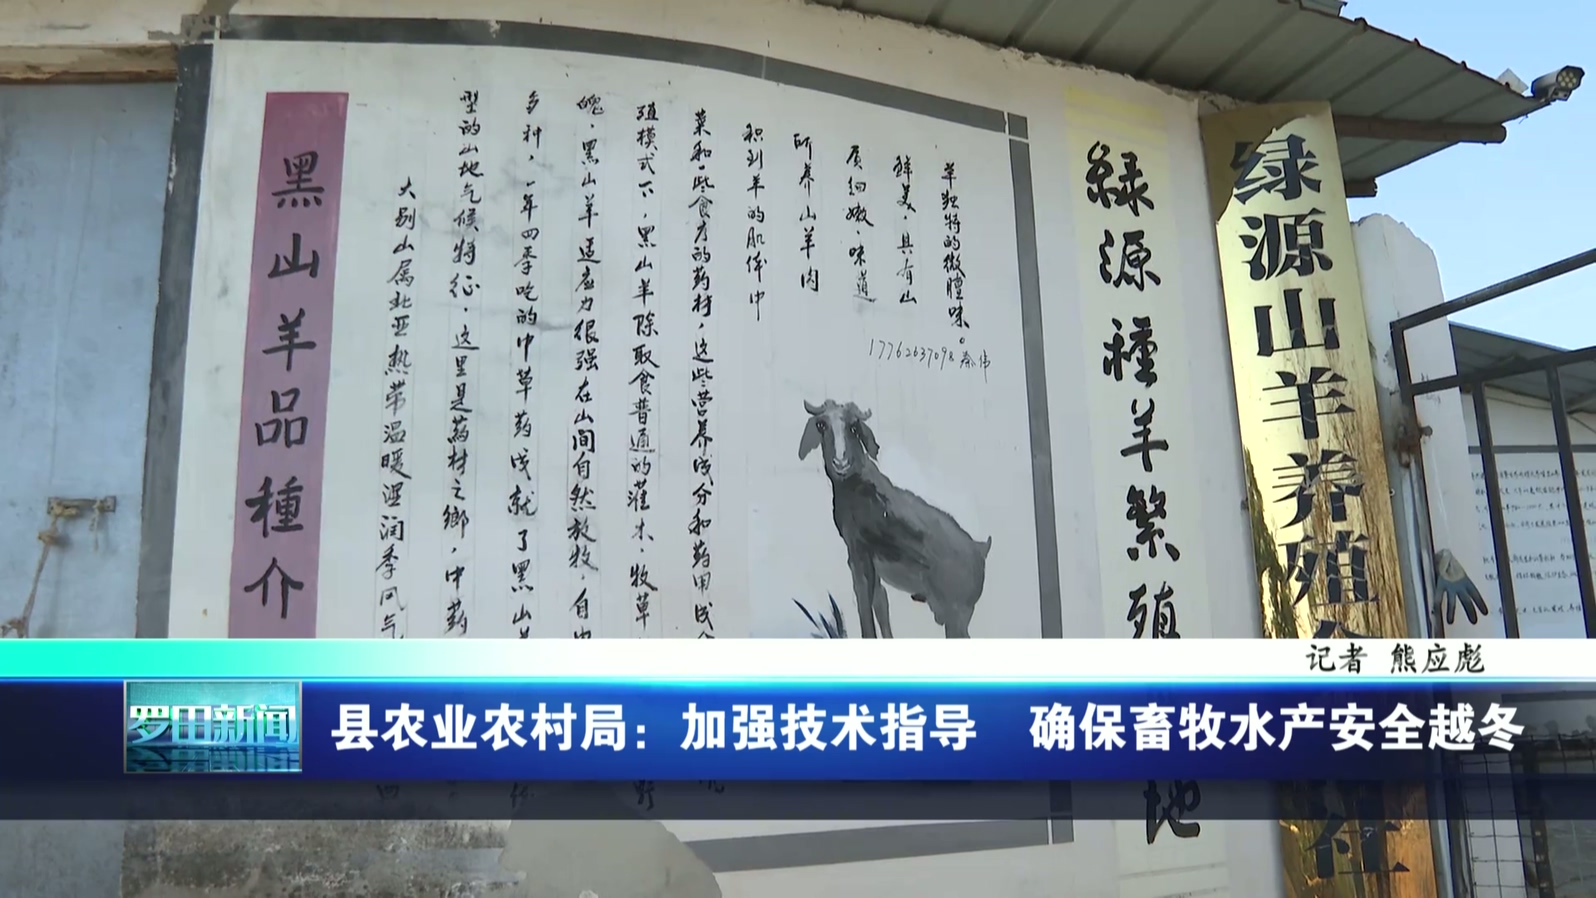 黑山羊品種介
大别山属北亚热带温暖湿润季风气
型的山地气候特征，这里是药材之鄉，中药
多种，一年四季吃的中草药成就了黑山羊
魄，黑山羊适应力很强在山间自然放牧，自由
殖模式下，黑山羊除取食普通的灌木、牧草
菜和一些食疗的药材，这些营养成分和药用成
积到羊的肌体中
所养山羊肉
质细嫩，味道
鲜美，具有山
羊独特的微膻味。
17762637098 秦伟
緑源種羊繁殖 地
绿源山羊养殖合 社
记者 熊应彪
罗田新闻
县农业农村局：加强技术指导 确保畜牧水产安全越冬